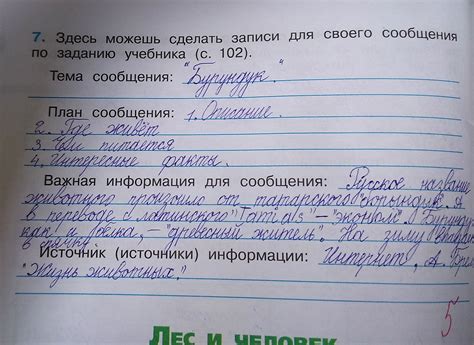 7. Здесь можешь сделать записи для своего сообщения
по заданию учебника (с. 102).
Тема сообщения: "Бурундук."
План сообщения: 1. Описание.
2. Где живёт
3. Чем питается
4. Интересные факты.
Важная информация для сообщения: Русское название
животного произошло от татарского "борындык". А
в переводе с латинского "Tamias" – "эконом". Бурундук,
как и белка, – "древесный житель". На зиму впадает
в спячку.
Источник (источники) информации: Интернет, А. Брем
"Жизнь животных."
5
ЛЕС И ЧЕЛОВЕК